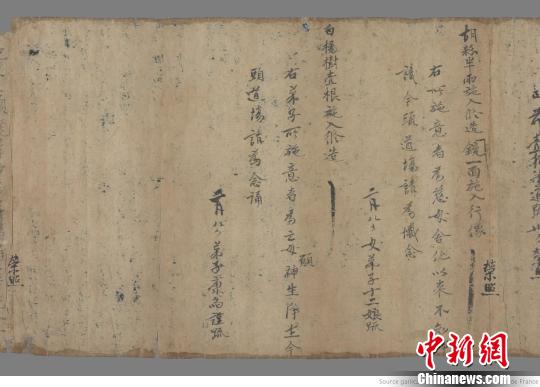 胡粉半兩施入修造 鏡一面施入行像
右所施意者為慈母舍化以來不知
識今頭道場請為懺念
二月八日女弟子十二娘疏
榮照
白楊樹壹根施入修造
右弟子所施意者為亡女神生淨土今
願
頭道場請為念誦
月八日弟子謹疏
榮照
中新網
Chinanews.com
Source gallica
de France